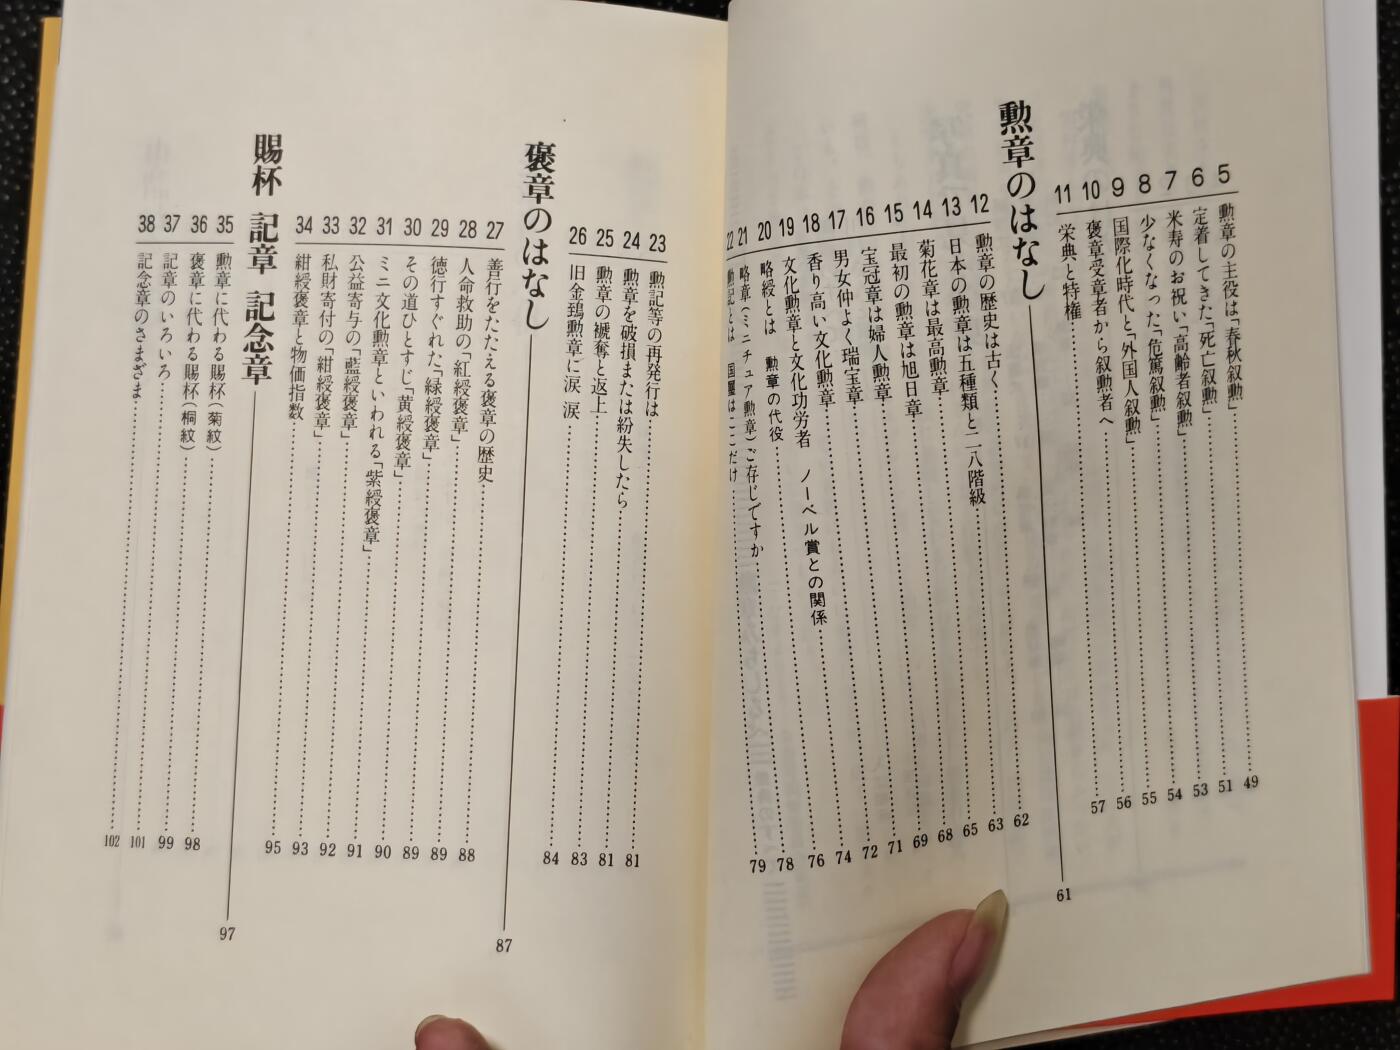 5 勲章の主役は「春秋叙勲」……49
6 定着してきた「死亡叙勲」……51
7 米寿のお祝い「高齢者叙勲」……53
8 少なくなった「危篤叙勲」……54
9 国際化時代と「外国人叙勲」……55
10 褒章受章者から叙勲者へ……56
11 栄典と特権……57
勲章のはなし 61
12 勲章の歴史は古く……62
13 日本の勲章は五種類と二八階級……63
14 菊花章は最高勲章……65
15 最初の勲章は旭日章……68
16 宝冠章は婦人勲章……69
17 男女仲よく瑞宝章……71
18 香り高い文化勲章……72
19 文化勲章と文化功労者 ノーベル賞との関係……74
20 略綬とは 勲章の代役……76
21 略章(ミニチュア勲章)ご存じですか……78
22 勲記とは 国璽はここだけ……79
23 勲記等の再発行は……81
24 勲章を破損または紛失したら……81
25 勲章の褫奪と返上……83
26 旧金鵄勲章に涙 涙……84
褒章のはなし 87
27 善行をたたえる褒章の歴史……88
28 人命救助の「紅綬褒章」……89
29 徳行すぐれた「緑綬褒章」……89
30 その道ひとすじ「黄綬褒章」……90
31 ミニ文化勲章といわれる「紫綬褒章」……91
32 公益寄与の「藍綬褒章」……92
33 私財寄付の「紺綬褒章」……93
34 紺綬褒章と物価指数……95
賜杯 記章 記念章 97
35 勲章に代わる賜杯(菊紋)……98
36 褒章に代わる賜杯(桐紋)……99
37 記章のいろいろ……101
38 記念章のさまざま……102